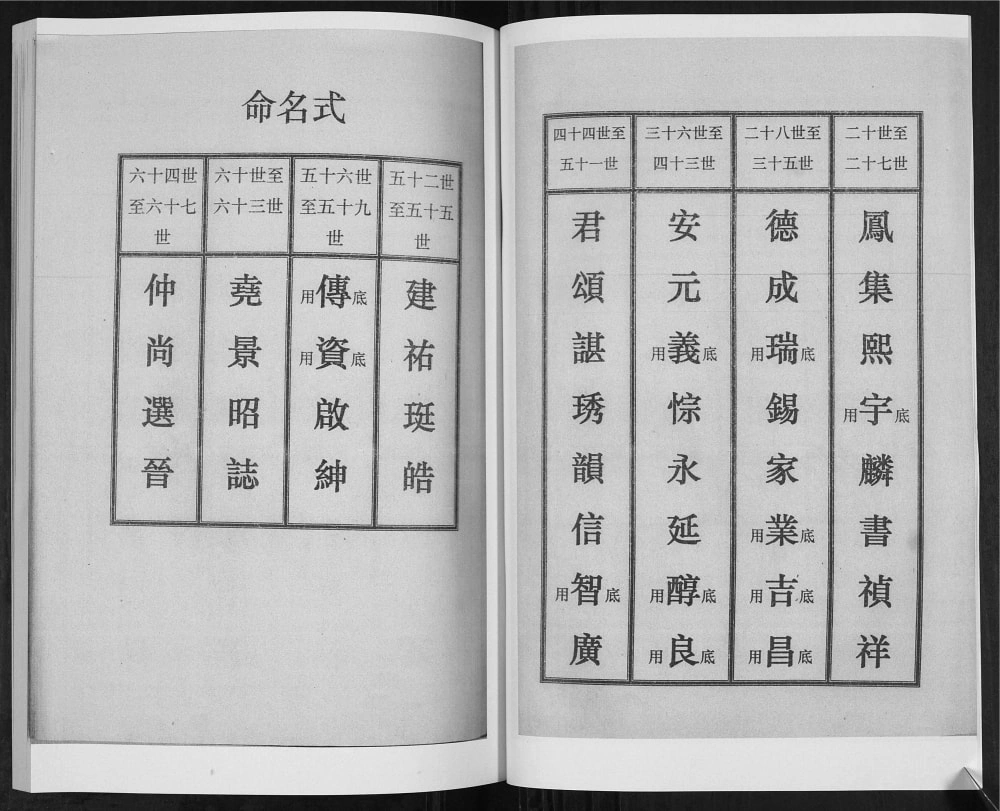 二十世至
二十七世
鳳
集
熙
用宇底
麟
書
禎
祥
二十八世至
三十五世
德
成
用瑞底
錫
家
用業底
用吉底
用昌底
三十六世至
四十三世
安
元
用義底
悰
永
延
用醇底
用良底
四十四世至
五十一世
君
頌
諶
琇
韻
信
用智底
廣
命名式
五十二世
至五十五
世
建
祐
珽
皓
五十六世
至五十九
世
用傳底
用資底
啟
紳
六十世至
六十三世
堯
景
昭
誌
六十四世
至六十七
世
仲
尚
選
晉